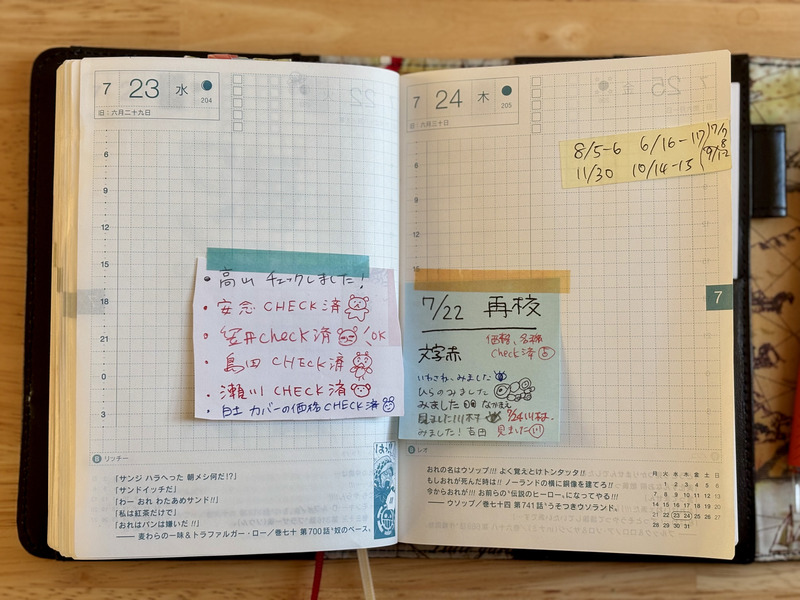 7 23 水
204
旧：六月二十九日
6
9
12
15
18
21
0
3
7
・高山 チェックしました！
・安念 CHECK済
・笠井check済 OK
・島田 CHECK済
・瀬川 CHECK済
・白土 カバーの価格CHECK済
リッチー
「サンジ ハラへった 朝メシ何だ!?」
「サンドイッチだ」
「わー おれ わたあめサンド!!」
「私は紅茶だけで」
「おれはパンは嫌いだ!!」
── 麦わらの一味&トラファルガー・ロー／巻七十 第700話“奴のペース”
7 24 木
205
旧：六月三十日
6
9
12
8/5-6 6/16-17
11/30 10/14-15
7/22 再校
価格、名称
文字赤 Check済
いわさき、みました
ひらのみました
みました なかまえ
見ました川村 7/24 川村
みました！吉田 見ました
7
レオ
おれの名はウソップ!!! よく覚えとけトンタッタ!!
もしおれが死んだ時は!! ノーランドの横に銅像を建てろ!!
今からおれが!!! お前らの“伝説のヒーロー”になってやる!!!
── ウソップ／巻七十四 第741話“うそつきウソランド”
月 火 水 木 金 土 日
1 2 3 4 5 6
7 8 9 10 11 12 13
14 15 16 17 18 19 20
21 22 23 24 25 26 27
28 29 30 31